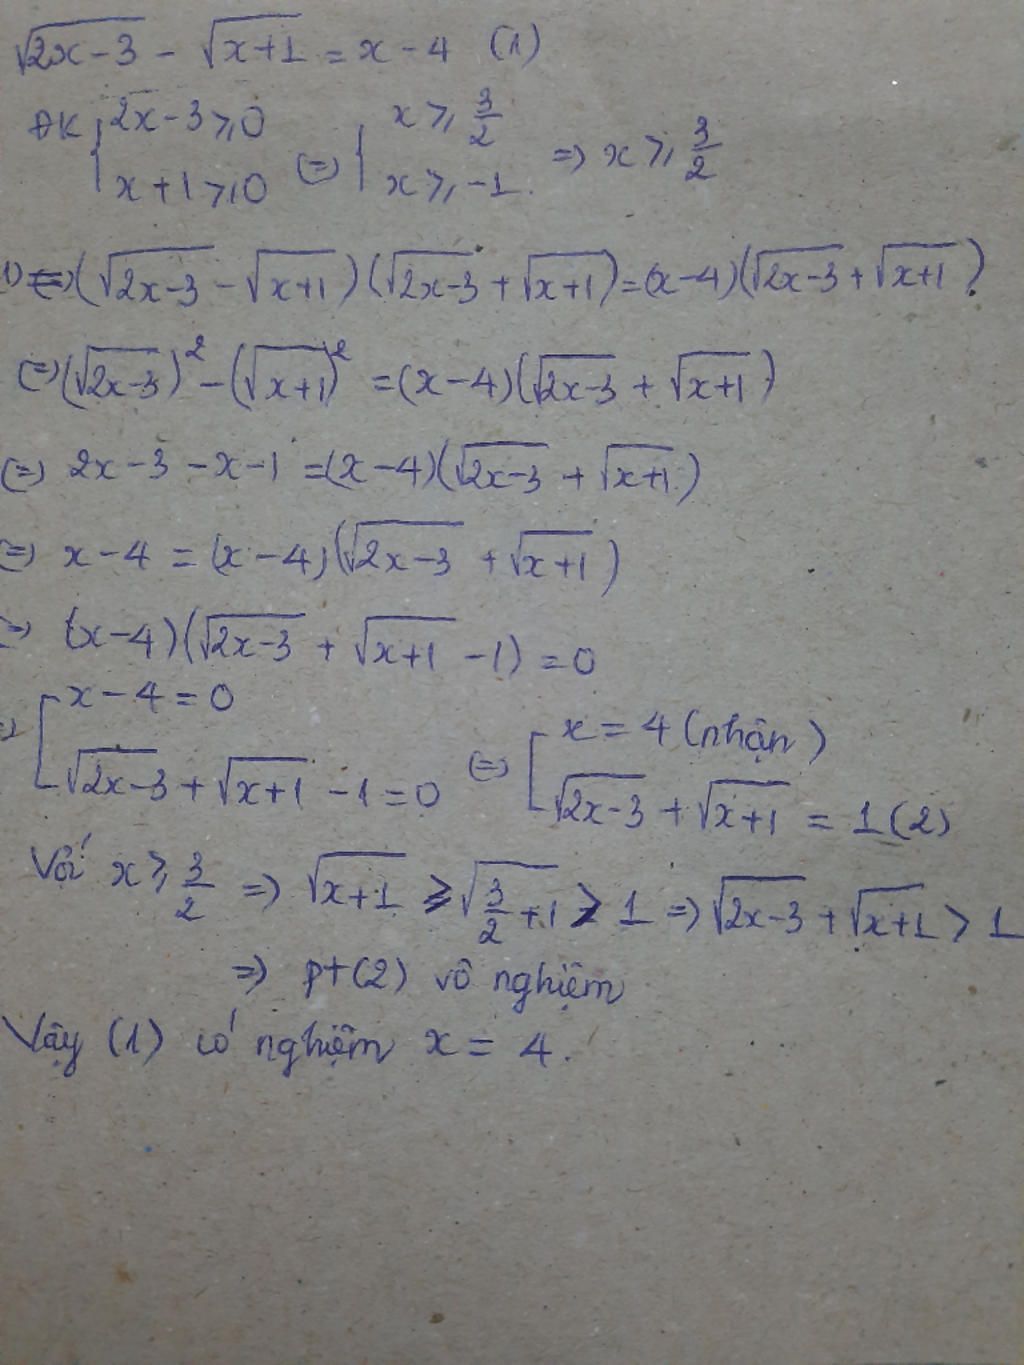 √(2x-3) - √(x+1) = x - 4 (1)
ĐK { 2x-3 ⩾ 0 ; x+1 ⩾ 0 (=) { x ⩾ 3/2 ; x ⩾ -1. => x ⩾ 3/2
1) (=) (√(2x-3) - √(x+1)) (√(2x-3) + √(x+1)) = (x-4)(√(2x-3) + √(x+1))
(=) (√(2x-3))² - (√(x+1))² = (x-4)(√(2x-3) + √(x+1))
(=) 2x-3-x-1 = (x-4)(√(2x-3) + √(x+1))
(=) x-4 = (x-4)(√(2x-3) + √(x+1))
=> (x-4)(√(2x-3) + √(x+1) - 1) = 0
[ x-4 = 0 ; √(2x-3) + √(x+1) - 1 = 0 (=) [ x = 4 (nhận) ; √(2x-3) + √(x+1) = 1 (2)
Với x ⩾ 3/2 => √(x+1) ⩾ √(3/2+1) > 1 => √(2x-3) + √(x+1) > 1
=> pt(2) vô nghiệm
Vậy (1) có nghiệm x = 4.